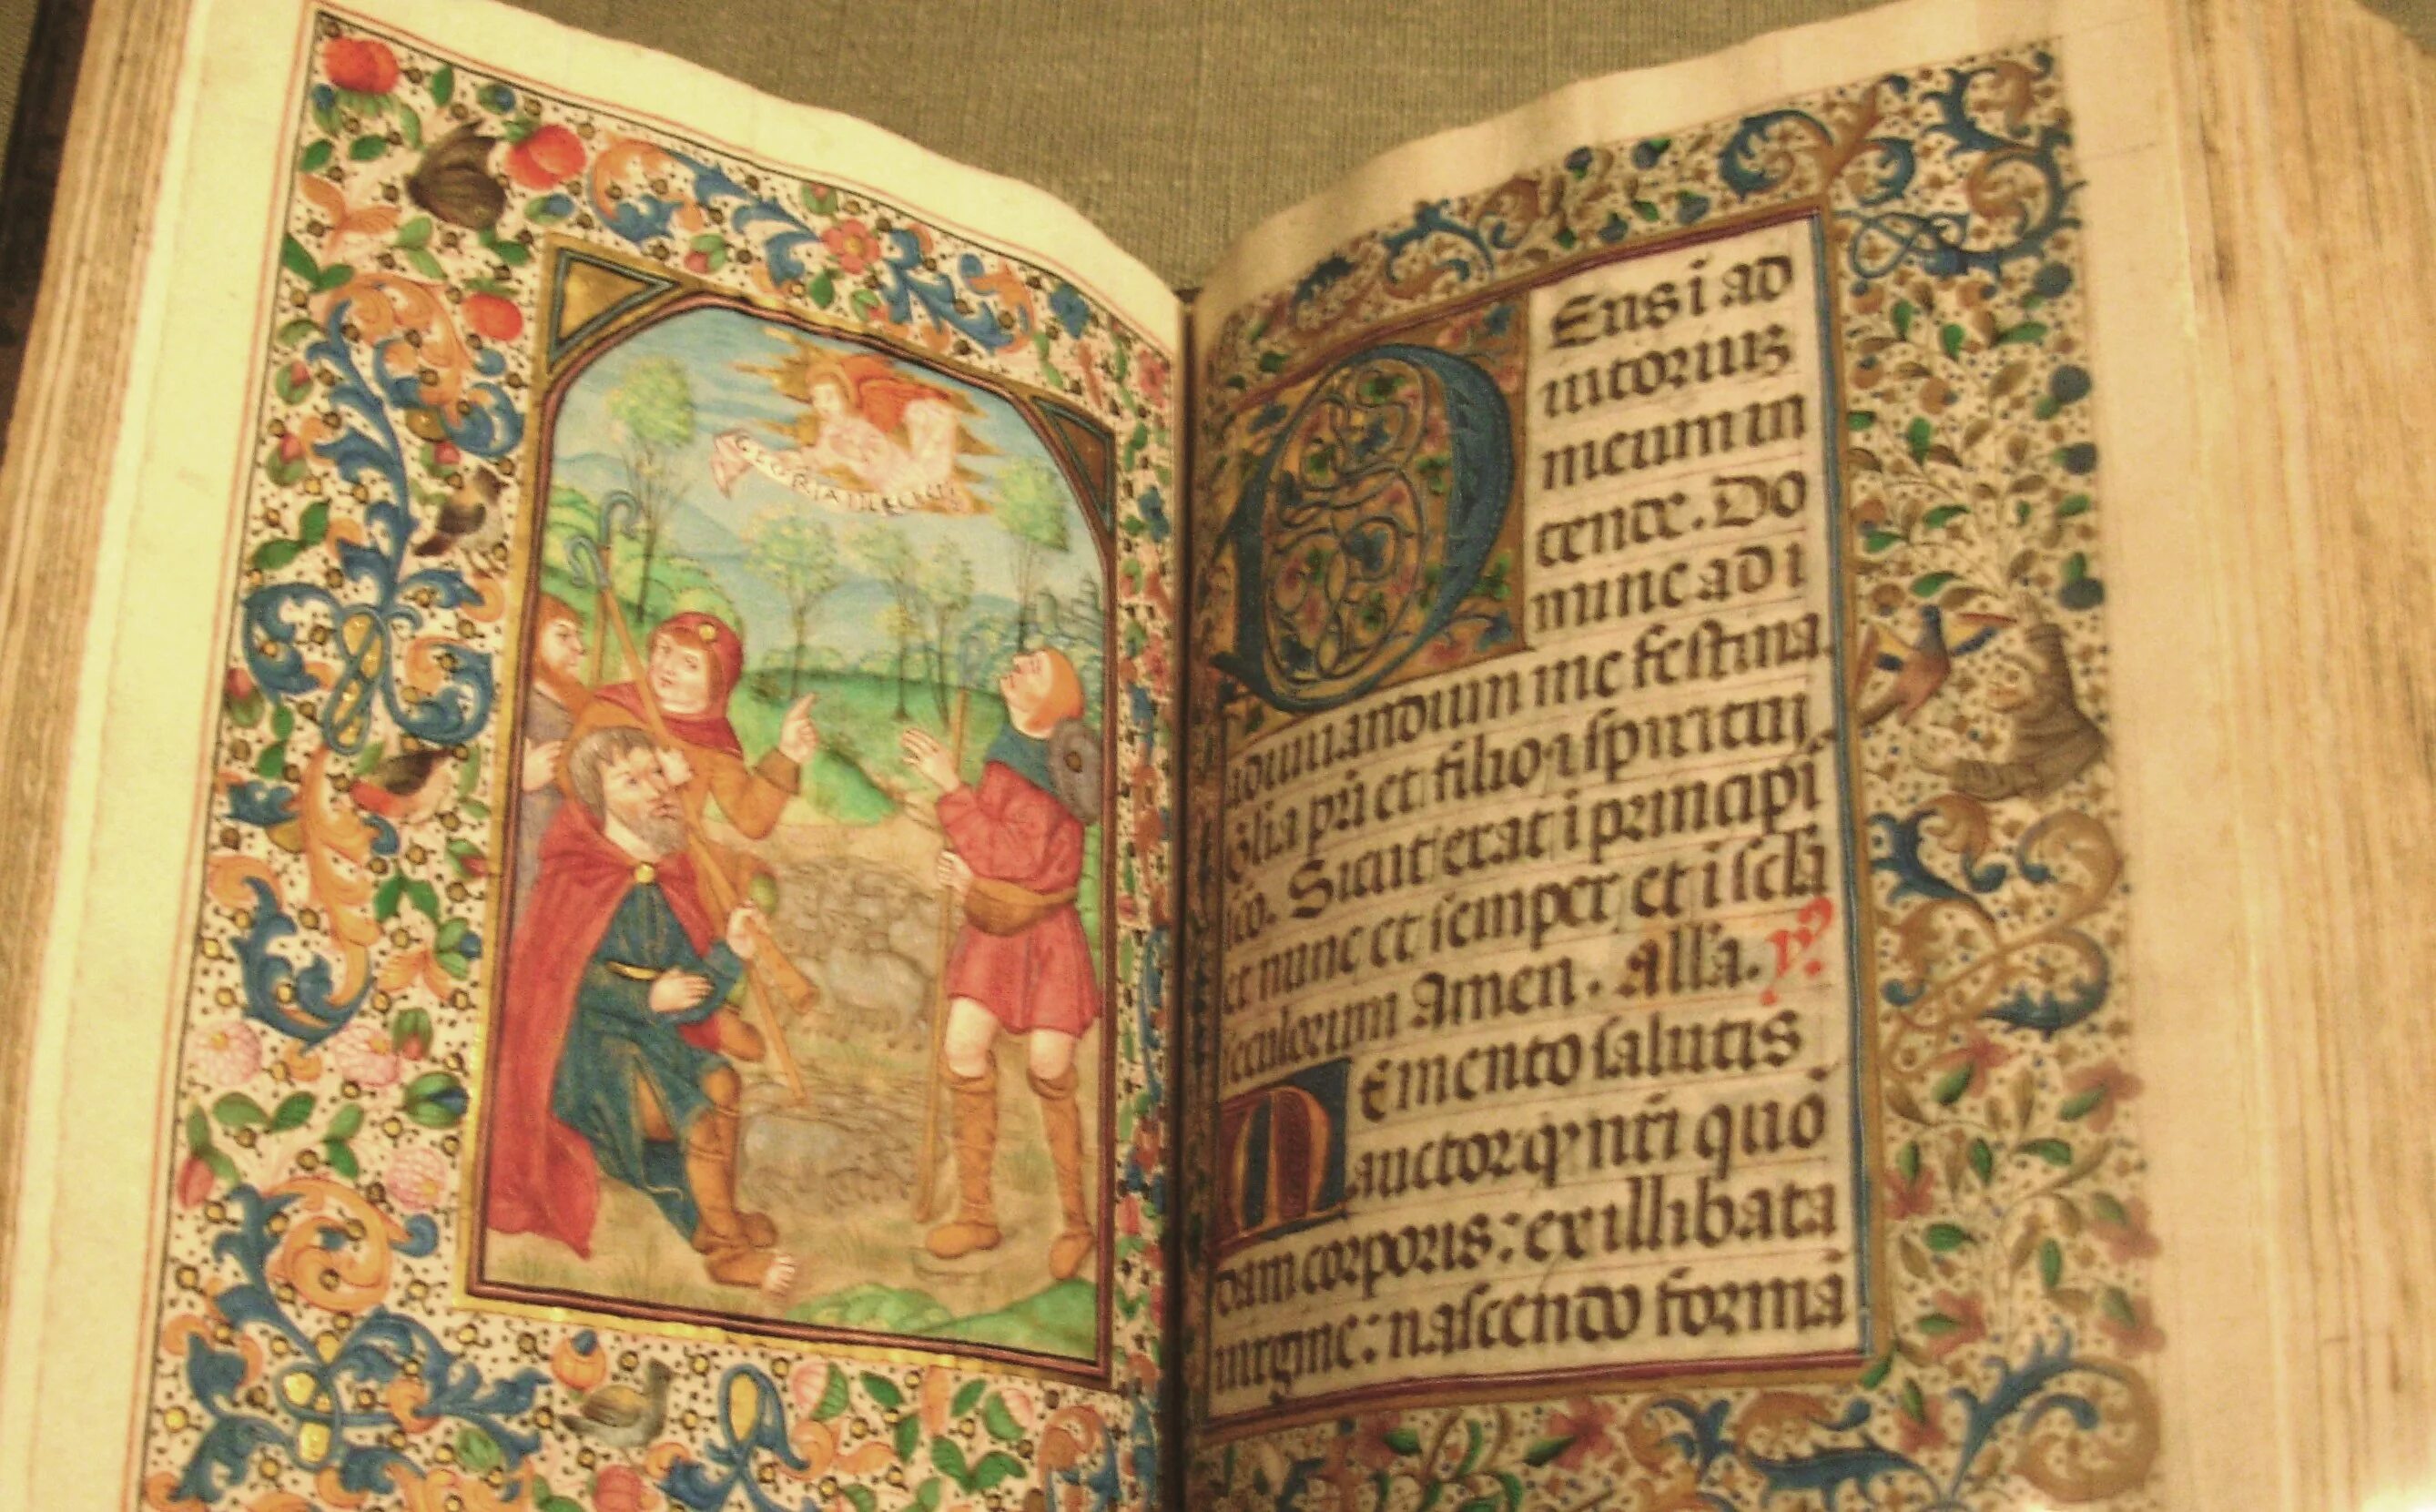 GLORIA IN EXCELSIS
Deus i ad
iutoriuz
meum in
tende. Do
mine ad i
uuandum me festina
Glia pri et filio ⁊ spiritui
sco. Sicut erat i principi
et nunc et semper et i scla
seculorum Amen. Alla. v.
Memento salutis
auctor qͥ nrī quo
dam corporis: ex illibata
uirgine: nascendo formā